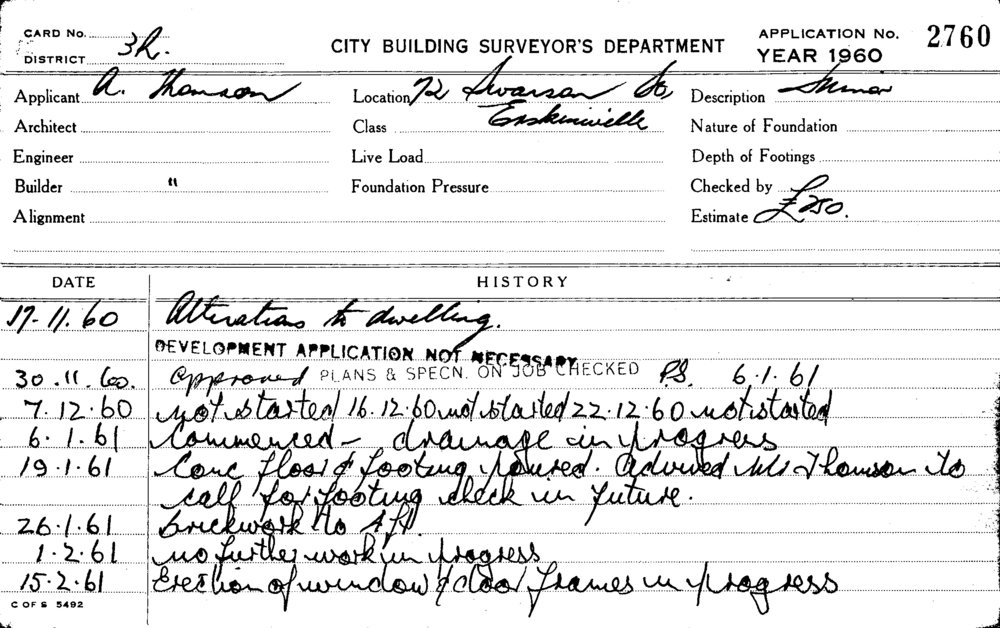 CARD No.
DISTRICT 3R.
CITY BUILDING SURVEYOR'S DEPARTMENT
APPLICATION No. 2760
YEAR 1960
Applicant A. Thomson
Location 72 Swanson St,
Description Minor
Architect
Class Erskineville
Nature of Foundation
Engineer
Live Load
Depth of Footings
Builder "
Foundation Pressure
Checked by
Alignment
Estimate £250.
DATE HISTORY
17-11.60 Alterations to dwelling.
DEVELOPMENT APPLICATION NOT NECESSARY
30.11.60. Approved PLANS & SPECN. ON JOB CHECKED P.S. 6.1.61
7.12.60 not started 16.12.60 not started 22.12.60 not started
6.1.61 Commenced - drainage in progress
19.1.61 Conc floor & footing poured. Advised Mr Thomson to
call for footing check in future.
26.1.61 brickwork to 4ft.
1.2.61 no further work in progress
15.2.61 Erection of window & door frames in progress
C OF S 5492